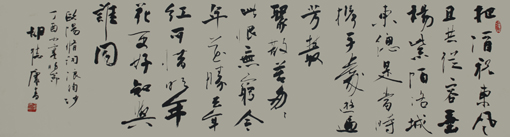 把酒祝東風
且共從容垂
楊紫陌洛城
東總是當時
攜手處遊遍
芳叢
聚散苦匆々
此恨無窮今
年花勝去年
紅可惜明年
花更好知與
誰同
歐陽脩詞浪淘沙
丁酉